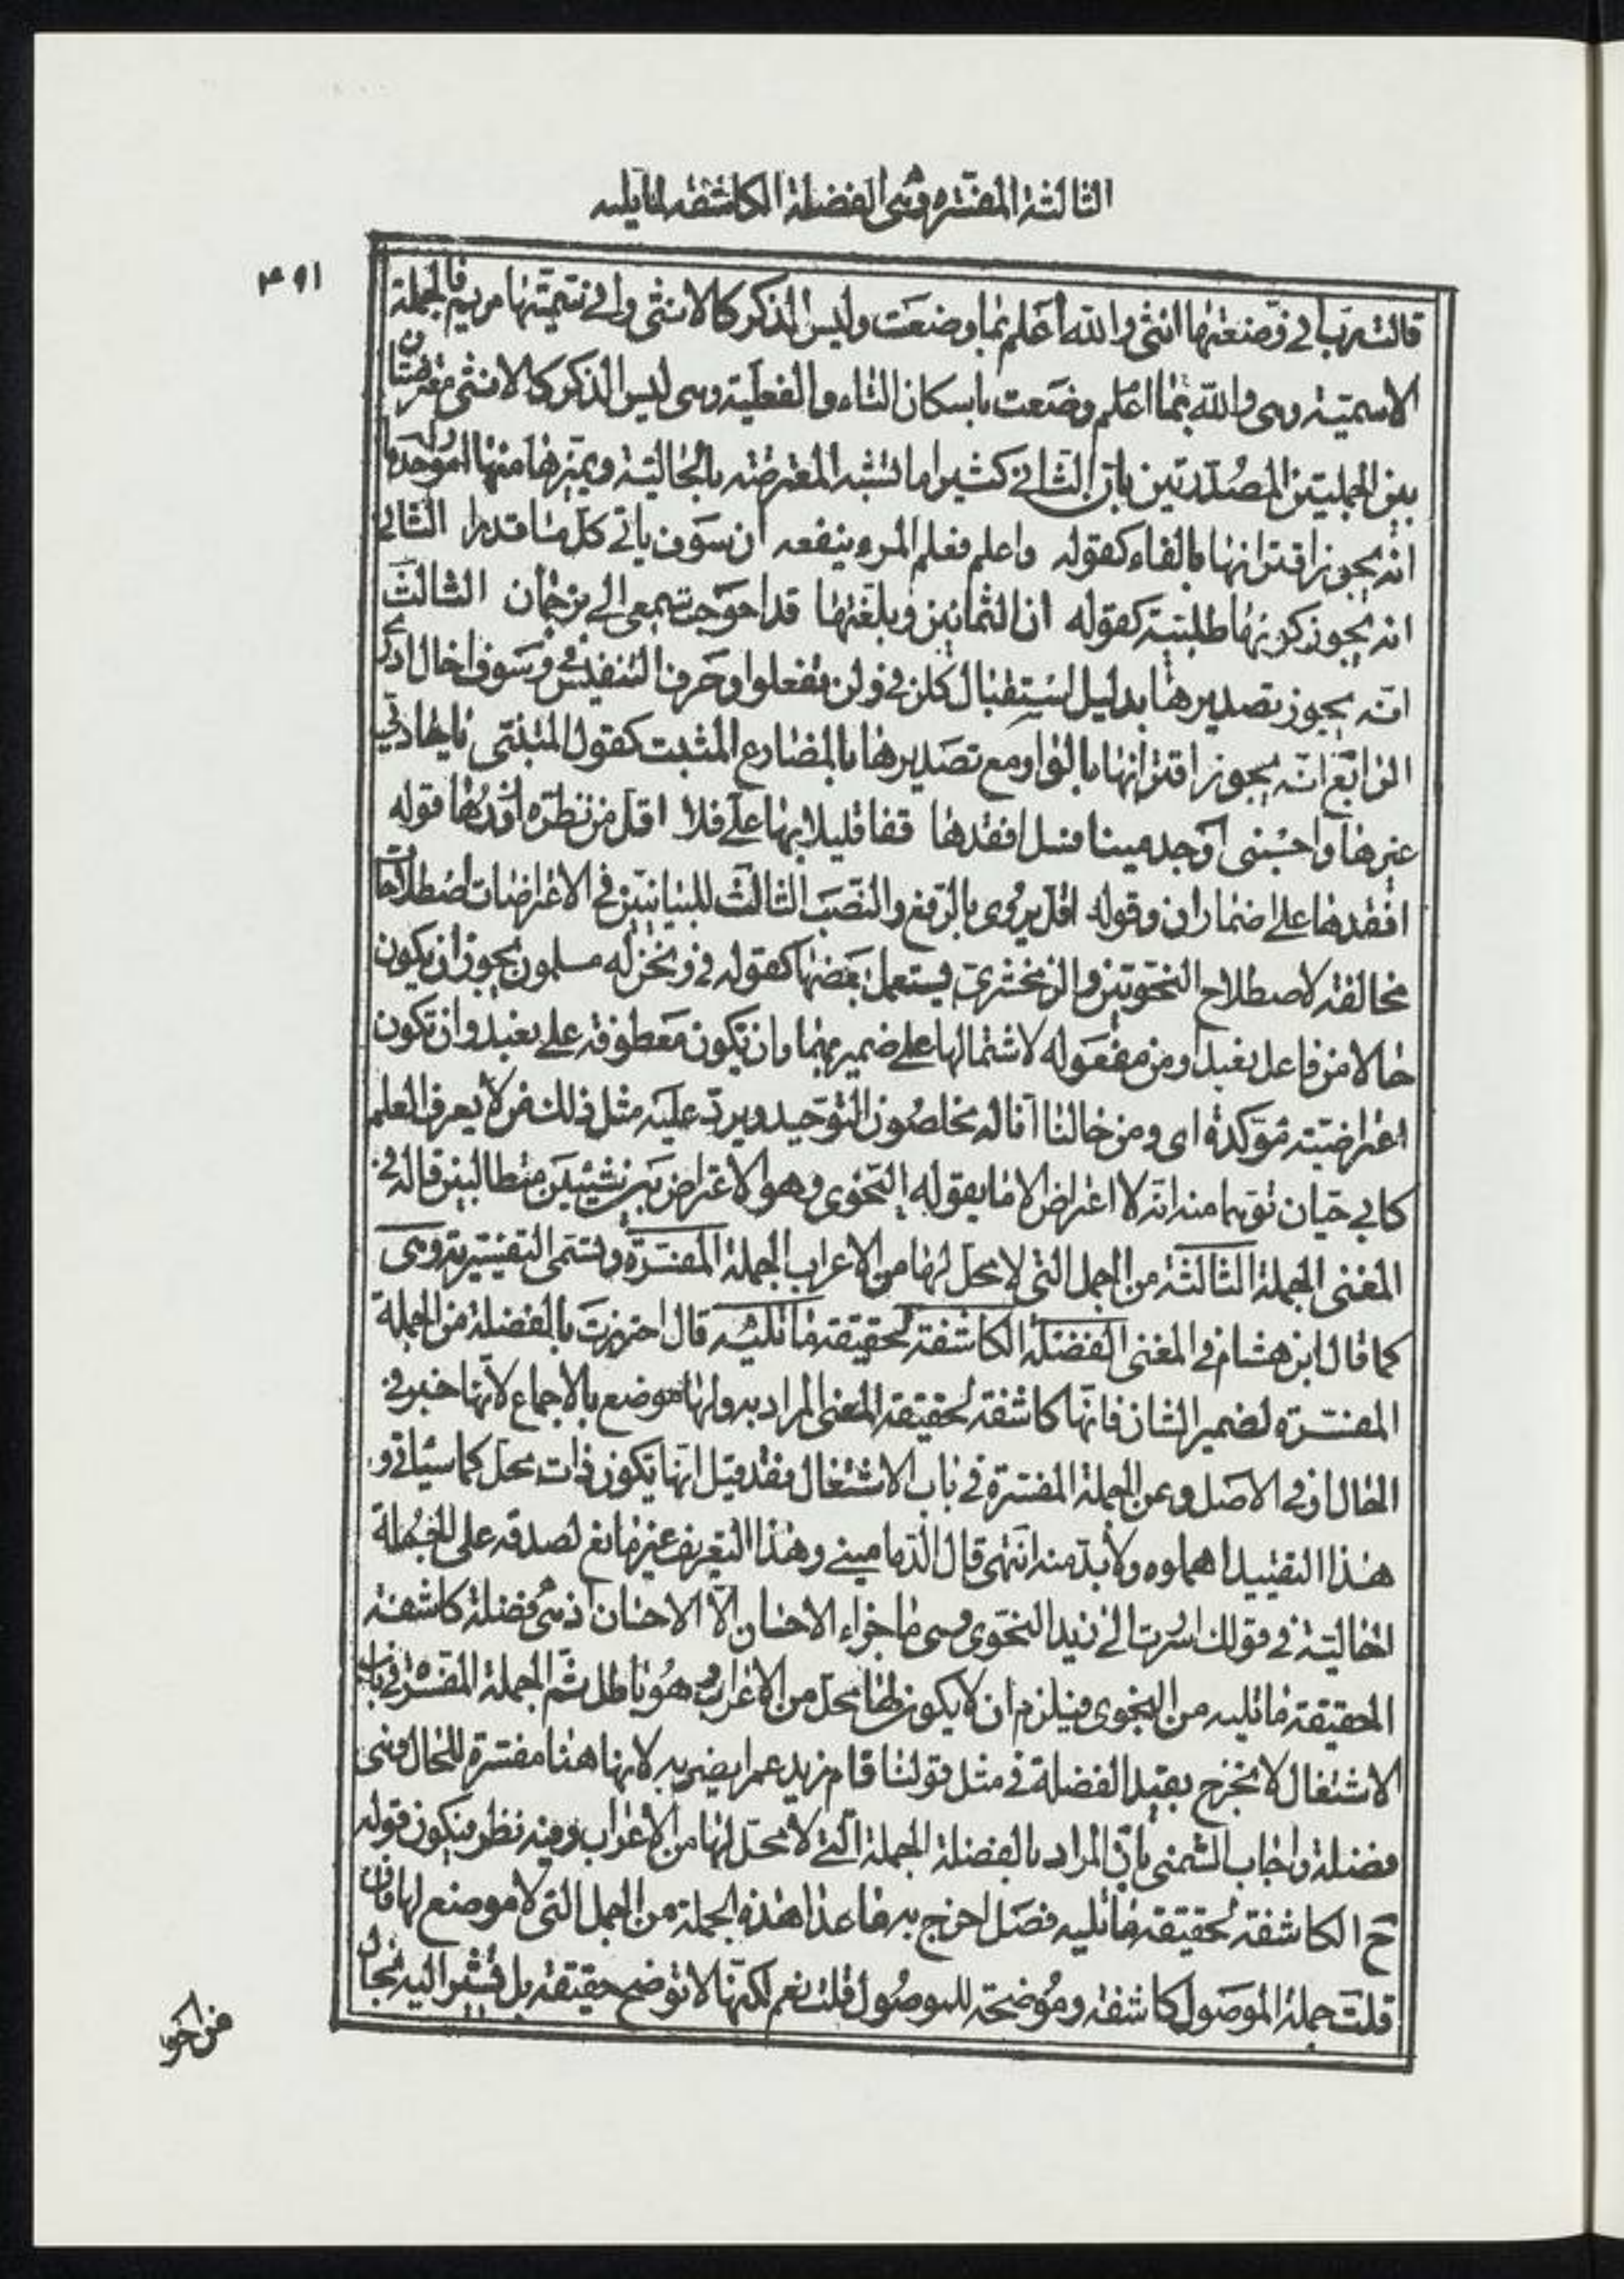 الثالثة المفسّره وهى الفضلة الكاشفة لما يليه
٤٩١
قالت ربّ انّى وضعتها انثى والله أعلم بما وضعت وليس الذكر كالانثى وانّى سمّيتها مريم فالجملة
الاسميّة وهى والله اعلم بما وضعت باسكان التاء والفعليّة وهى ليس الذكر كالانثى معترضتان
بين الجملتين المصدّرتين بانّى الثانى كثيرا ما تشتبه المعترضة بالحالية ويميّزها منها امور احدها
انّه يجوز اقترانها بالفاء كقوله واعلم فعلم المرء ينفعه ان سوف ياتى كل ما قدرا الثانى
انه يجوز كونها طلبيّة كقوله ان الثمانين وبلّغتها قد احوجت سمعى الى ترجمان الثالث
انّه يجوز تصديرها بدليل استقبال كلن فى ولن تفعلوا وحرف التنفيس فى وسوف اخال ادرى
الرابع انّه يجوز اقترانها بالواو مع تصديرها بالمضارع المثبت كقول المتنبّى يا حاديى
عيرها واحسبنى اوجد ميتا قبيل افقدها قفا قليلا بها علىّ فلا اقل من نظرة ازوّدها قوله
افقدها على اضمار ان وقوله اقل يروى بالرفع والنصب الثالث للبيانيين فى الاعتراضات اصطلاحات
مخالفة لاصطلاح النحويين والزمخشرى يستعمل بعضها كقوله فى ونحن له مسلمون يجوز ان يكون
حالا من فاعل نعبد او من مفعوله لاشتمالها على ضميريهما وان تكون معطوفة على نعبد وان تكون
اعتراضيّة مؤكدة اى ومن حالنا انا له مخلصون التوحيد ويرد عليه مثل ذلك من لا يعرف العلم
كابى حيّان توهما منه انّه لا اعتراض الا ما يقوله النحوى وهو الاعتراض بين شيئين متطالبين قاله فى
المغنى الجملة الثالثة من الجمل التى لا محل لها من الاعراب الجملة المفسّرة وتسمّى التفسيرية وهى
كما قال ابن هشام فى المغنى الفضلة الكاشفة لحقيقة ما تليه قال احترزت بالفضلة من الجملة
المفسّرة لضمير الشان فانّها كاشفة لحقيقة المعنى المراد به ولها موضع بالاجماع لانّها خبر فى
الحال او فى الاصل وعن الجملة المفسّرة فى باب الاشتغال فقد قيل انها تكون ذات محل كما سياتى و
هذا التقييد اهملوه ولا بدّ منه انتهى قال الدمامينى وهذا التعريف غير مانع لصدقه على الجملة
الحالية فى قولك اسررت الى زيد النجوى وهى ما جزاء الاحسان الّا الاحسان اذ هى فضلة كاشفة
لحقيقة ما تليه من النجوى فيلزم ان لا يكون لها محل من الاعراب وهو باطل ثم الجملة المفسّرة فى باب
الاشتغال لا تخرج بقيد الفضلة فى مثل قولنا قام زيد عمرا يضربه لانها هنا مفسّرة للحال وهى
فضلة واجاب الشمنى بانّ المراد بالفضلة الجملة الّتى لا محلّ لها من الاعراب وفيه نظر فيكون قوله
ح الكاشفة لحقيقة ما تليه فصل اخرج به ما عدا هذه الجملة من الجمل التى لا موضع لها فان
قلت جملة الموصول كاشفة وموضحة للموصول قلت نعم لكنّها لا توضح حقيقة بل تشير اليه بحال
من احو